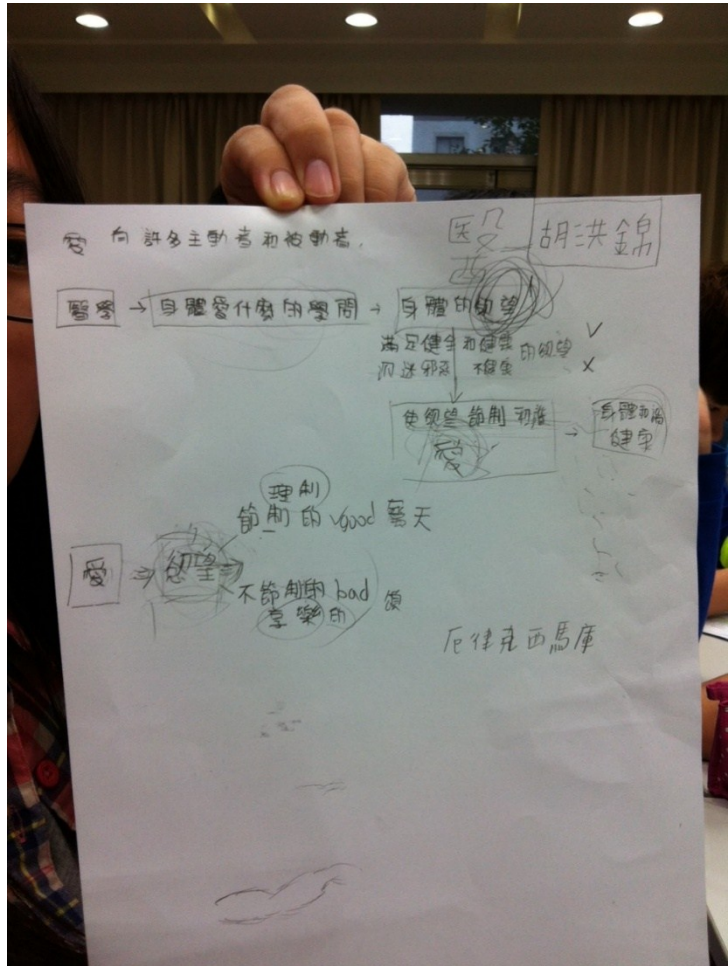 愛 向 許多主動者和被動者.
醫
胡洪錦
醫學 → 身體愛什麼的學問 → 身體的慾望
滿足健全和健康 的慾望 ✓
沉迷邪惡 不健康 ✗
使慾望 節制 和諧 → 身體和諧健康
愛
理制
節制的 good 蒼天
愛 ⇒ 慾望 ⇒
不節制的 bad 頌
享樂的
厄律克西馬庫